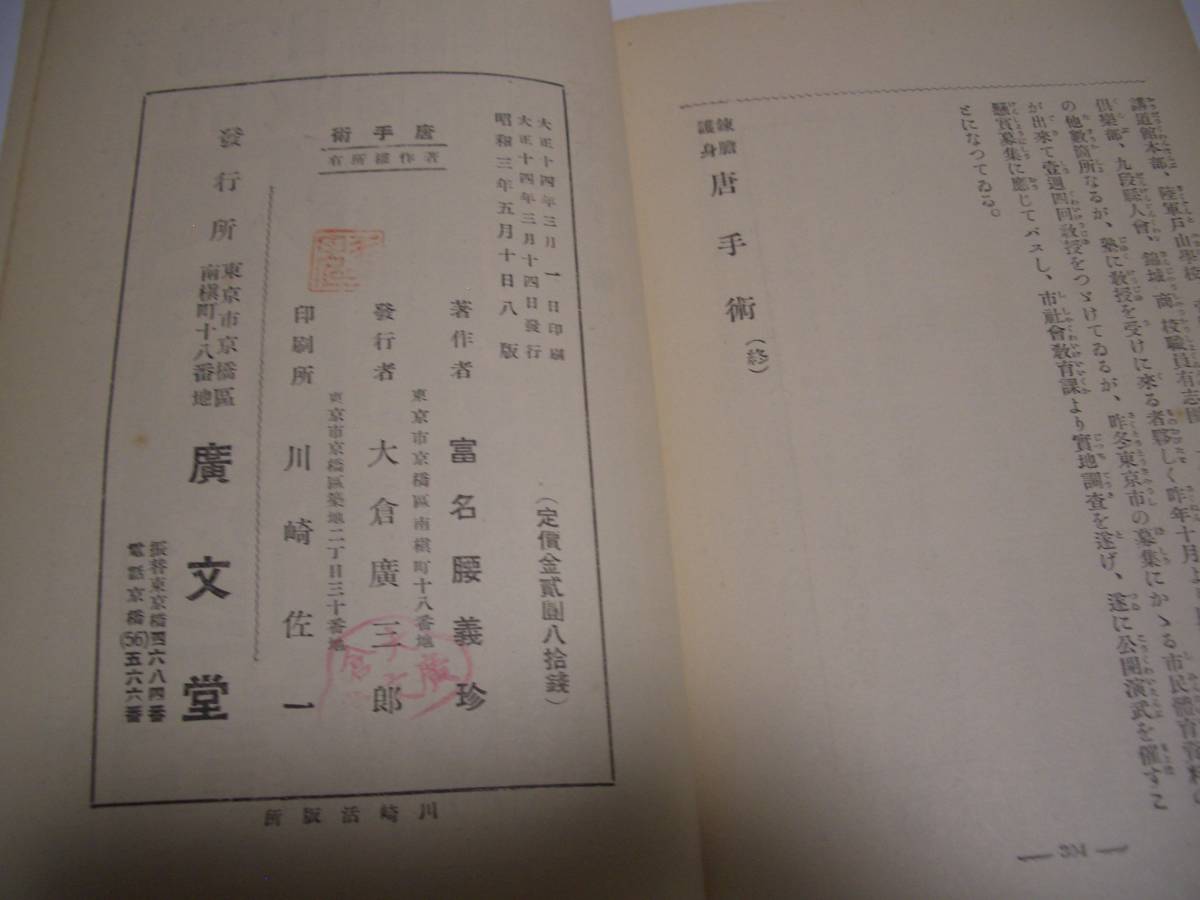 講道館本部、陸軍戸山學校、
倶樂部、九段縣人會、錦城商校職員有志團
の他數箇所なるが、塾に敎授を受けに來る者夥しく昨年十月よ
が出來て壹週四回敎授をつゞけてゐるが、昨冬東京市の募集にかゝる市民體育資料の
懸賞募集に應じてパスし、市社會敎育課より實地調査を遂げ、遂に公開演武を催すこ
とになつてゐる。
鍊膽
護身
唐手術(終)
— 304 —
大正十四年三月一日印刷
大正十四年三月十四日發行
昭和三年五月十日八版
(定價金貳圓八拾錢)
唐手術
著作權所有
著作者 富名腰義珍
東京市京橋區南槇町十八番地
發行者 大倉廣三郎
東京市京橋區築地二丁目三十番地
印刷所 川崎佐一
發行所
東京市京橋區
南槇町十八番地
廣文堂
振替東京橋四六八四番
電話京橋(56)五六六番
川崎活版所